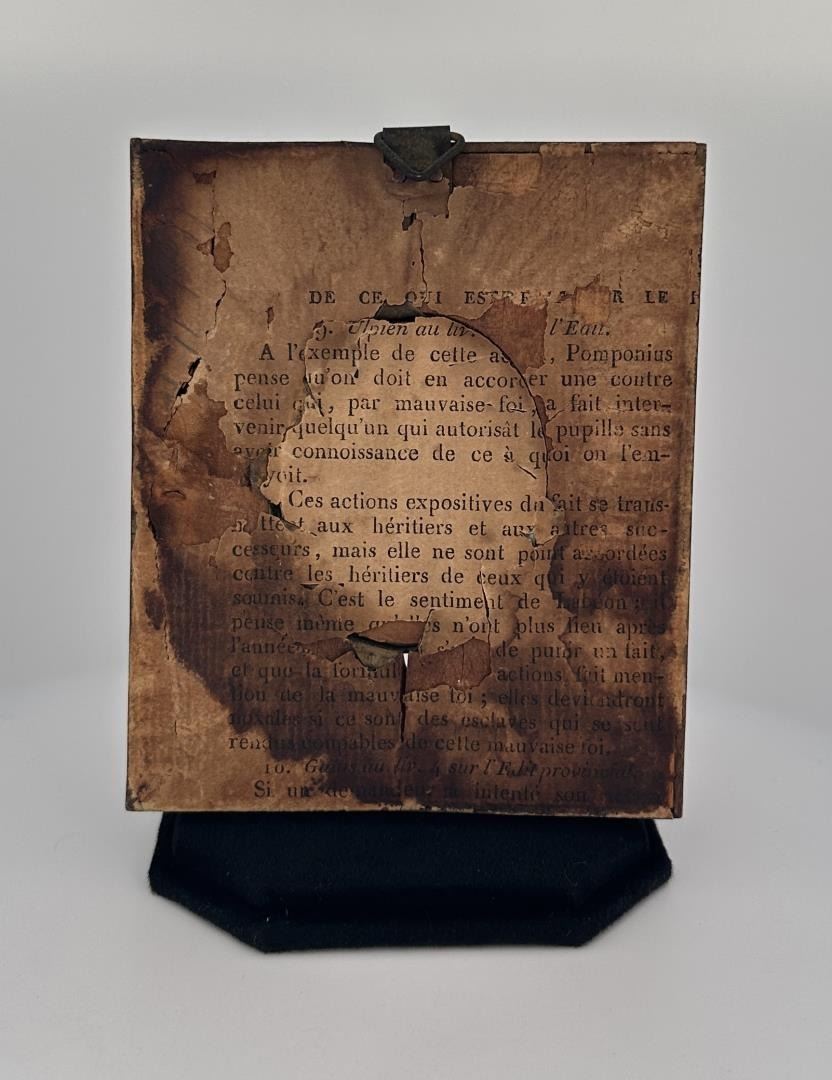 DE CE QUI EST R LE
9. Ulpien au liv. l'Edit.
A l'exemple de cette a , Pomponius
pense qu'on doit en accorder une contre
celui qui, par mauvaise-foi, a fait inter-
venir quelqu'un qui autorisât le pupille sans
avoir connoissance de ce à quoi on l'en-
voyoit.
Ces actions expositives du fait se trans-
mettent aux héritiers et aux autres suc-
cesseurs, mais elle ne sont point accordées
contre les héritiers de ceux qui y étoient
soumis. C'est le sentiment de Labéon : il
pense même qu'elles n'ont plus lieu après
l'année de punir un fait,
et que la formule actions fait men-
tion de la mauvaise foi ; elles deviendront
noxales si ce sont des esclaves qui se sont
rendus coupables de cette mauvaise foi.
10. Gaius au liv. 4 sur l'Edit provincial.
Si un demandeur a intenté son